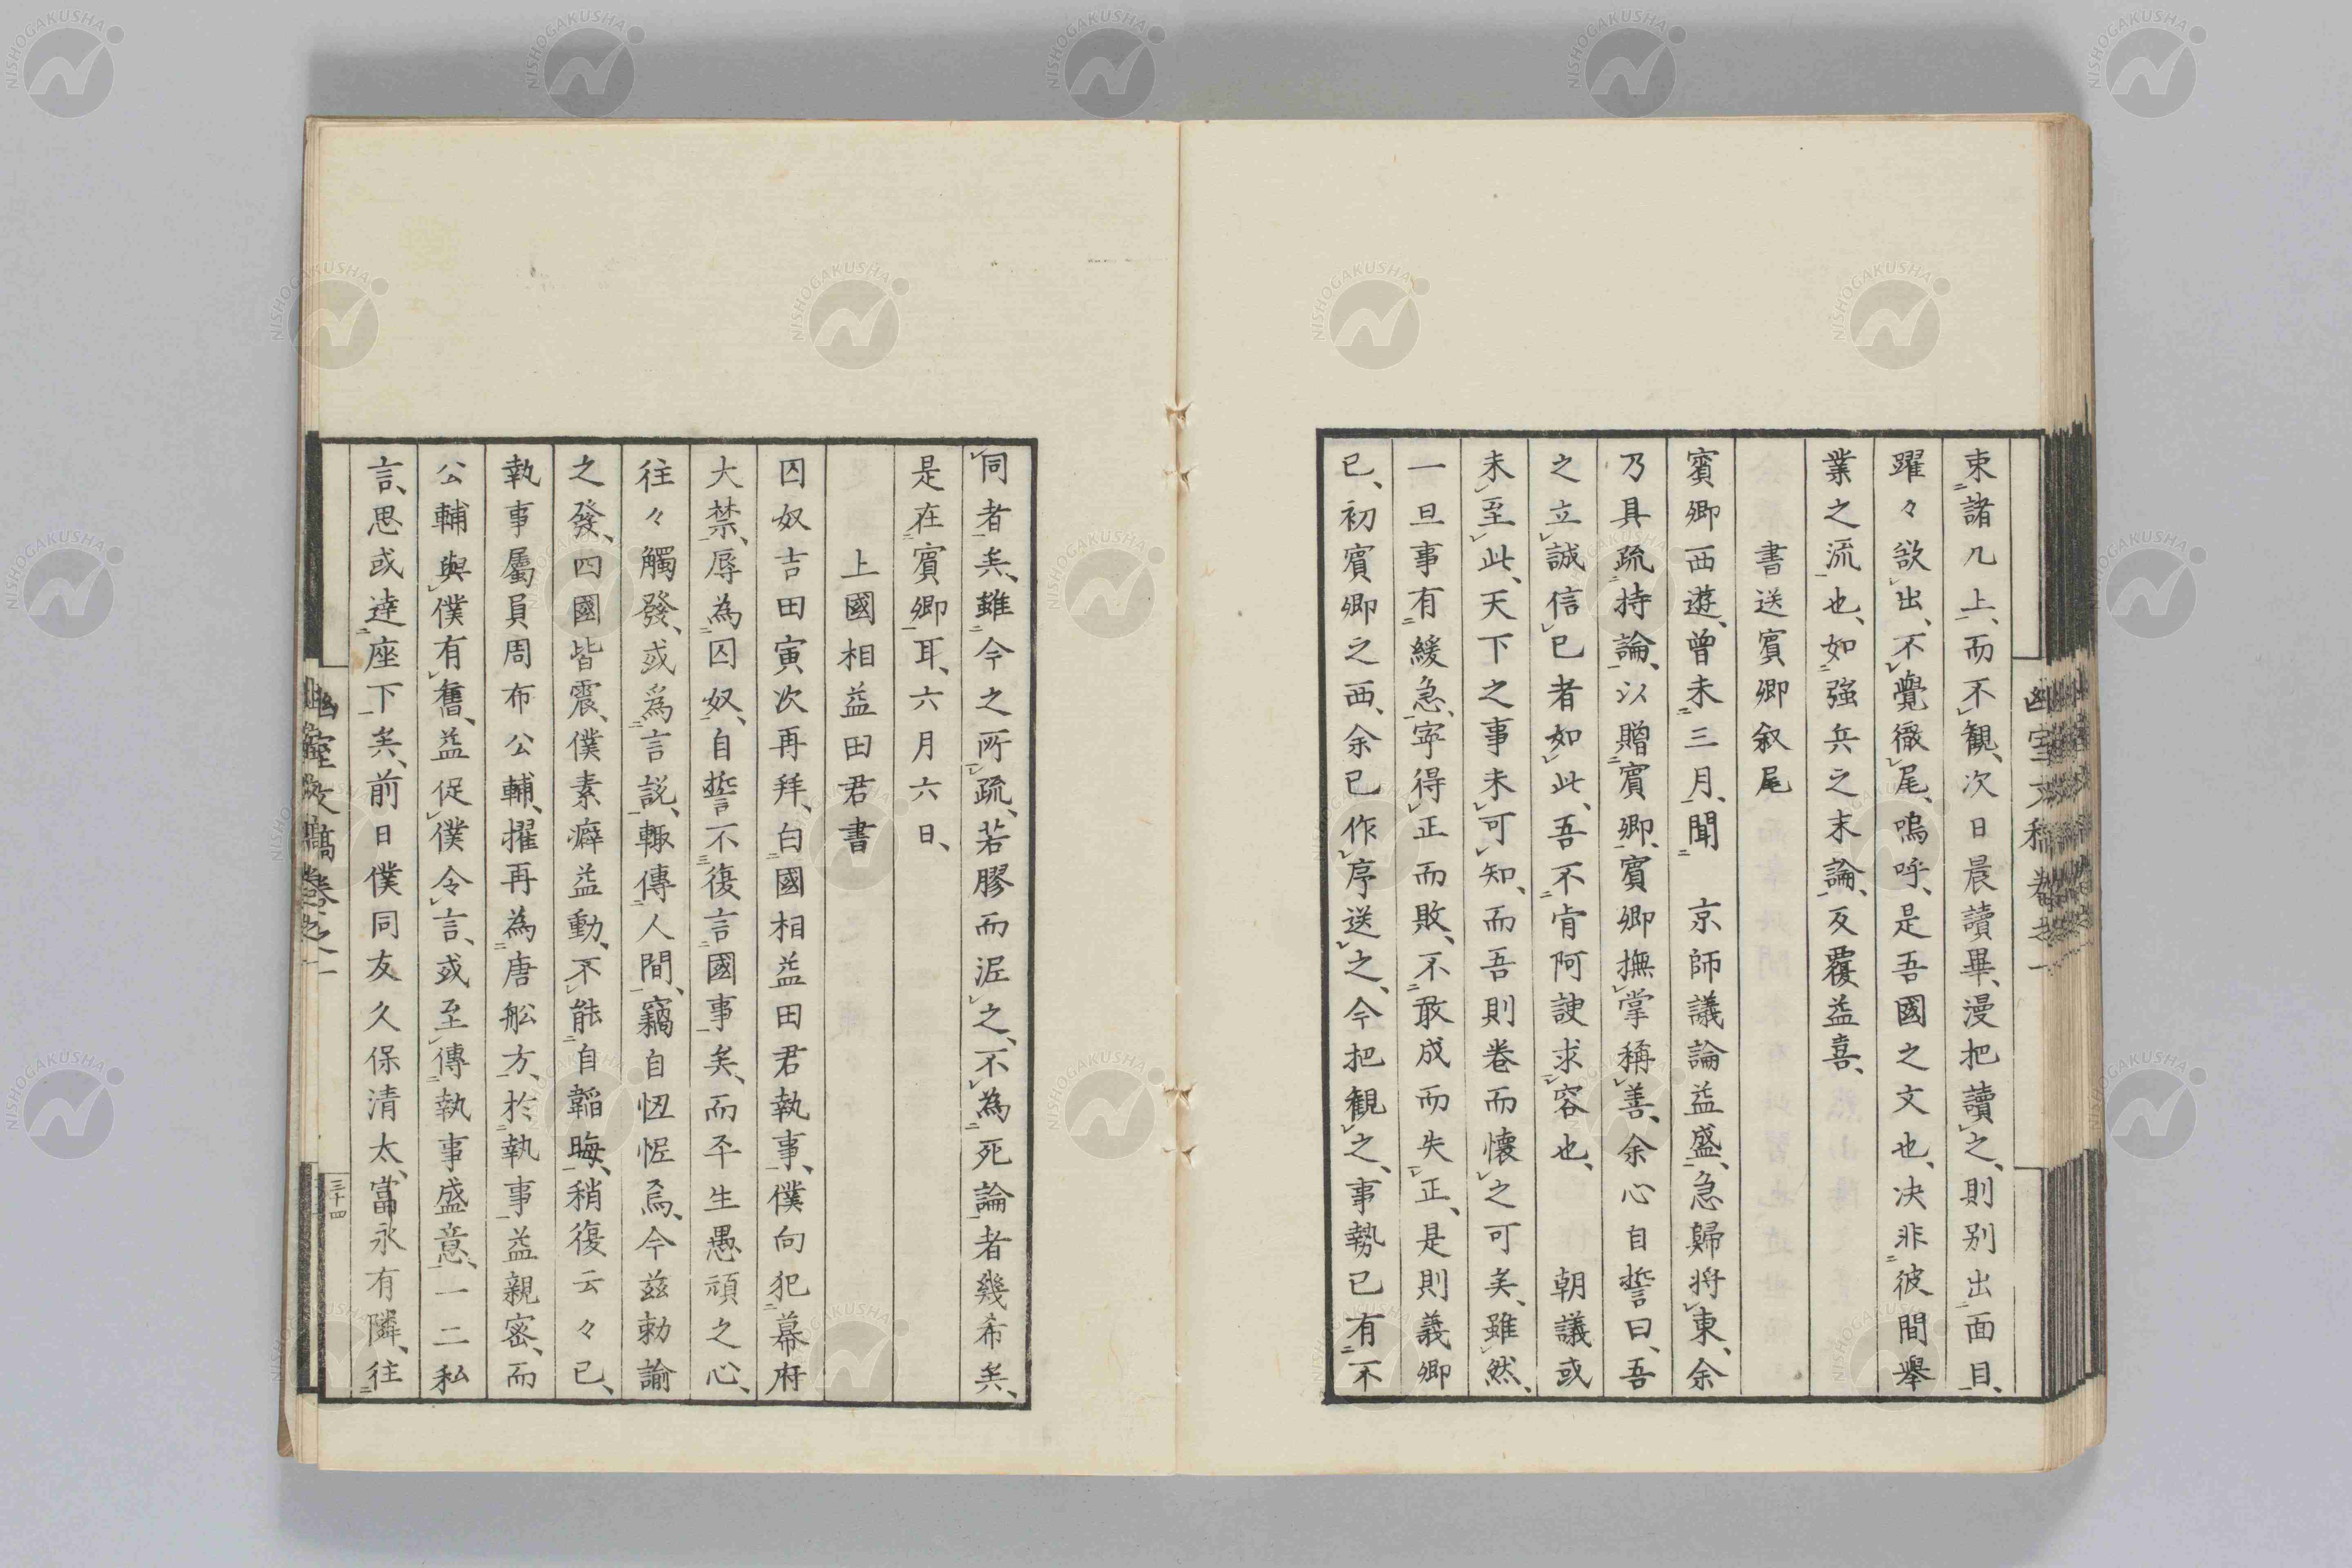 束諸几上、而不観、次日晨讀畢、漫把讀之、則別出面目、
躍々欲出、不覺徹尾、嗚呼、是吾國之文也、决非彼間擧
業之流也、如強兵之末論、反覆益喜、
書送賓卿叙尾
賓卿西遊、曽未三月、聞　京師議論益盛、急歸将東、余
乃具疏持論、以贈賓卿、賓卿撫掌稱善、余心自誓曰、吾
之立誠信已者如此、吾不肯阿諛求容也、　朝議或
未至此、天下之事未可知、而吾則巻而懐之可矣、雖然、
一旦事有緩急、寧得正而敗、不敢成而失正、是則義卿
已、初賓卿之西、余已作序送之、今把観之、事勢已有不
同者矣、雖今之所疏、若膠而泥之、不為死論者幾希矣、
是在賓卿耳、六月六日、
上國相益田君書
囚奴吉田寅次再拜、白國相益田君執事、僕向犯幕府
大禁、辱為囚奴、自誓不復言國事矣、而平生愚頑之心、
往々觸發、或爲言説、輙傳人間、竊自忸怩焉、今兹勅諭
之發、四國皆震、僕素癖益動、不能自韜晦、稍復云々已、
執事屬員周布公輔、擢再為唐舩方、於執事益親密、而
公輔與僕有舊、益促僕令言、或至傳執事盛意、一二私
言、思或達座下矣、前日僕同友久保清太、當永有隣、往
幽室文稿巻之一
三十四
NISHOGAKUSHA